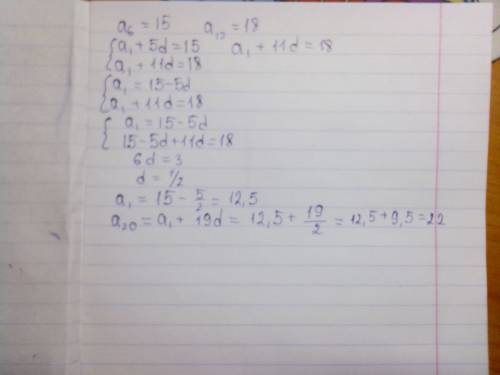 a₆ = 15 a₁₂ = 18
{ a₁ + 5d = 15 a₁ + 11d = 18
a₁ + 11d = 18
{ a₁ = 15 - 5d
a₁ + 11d = 18
{ a₁ = 15 - 5d
15 - 5d + 11d = 18
6d = 3
d = 1/2
a₁ = 15 - 5/2 = 12,5
a₂₀ = a₁ + 19d = 12,5 + 19/2 = 12,5 + 9,5 = 22